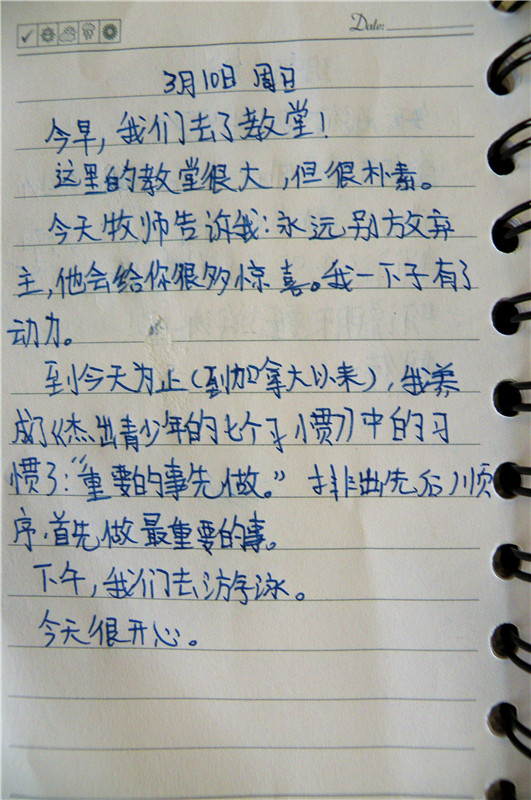 Date:
3月10日 周日
今早，我们去了教堂！
这里的教堂很大，但很朴素。
今天牧师告诉我：永远别放弃
主，他会给你很多惊喜。我一下子有了
动力。
到今天为止（到加拿大以来），我养
成了《杰出青少年的七个习惯》中的习
惯3：“重要的事先做。” 排出先后顺
序，首先做最重要的事。
下午，我们去游泳。
今天很开心。